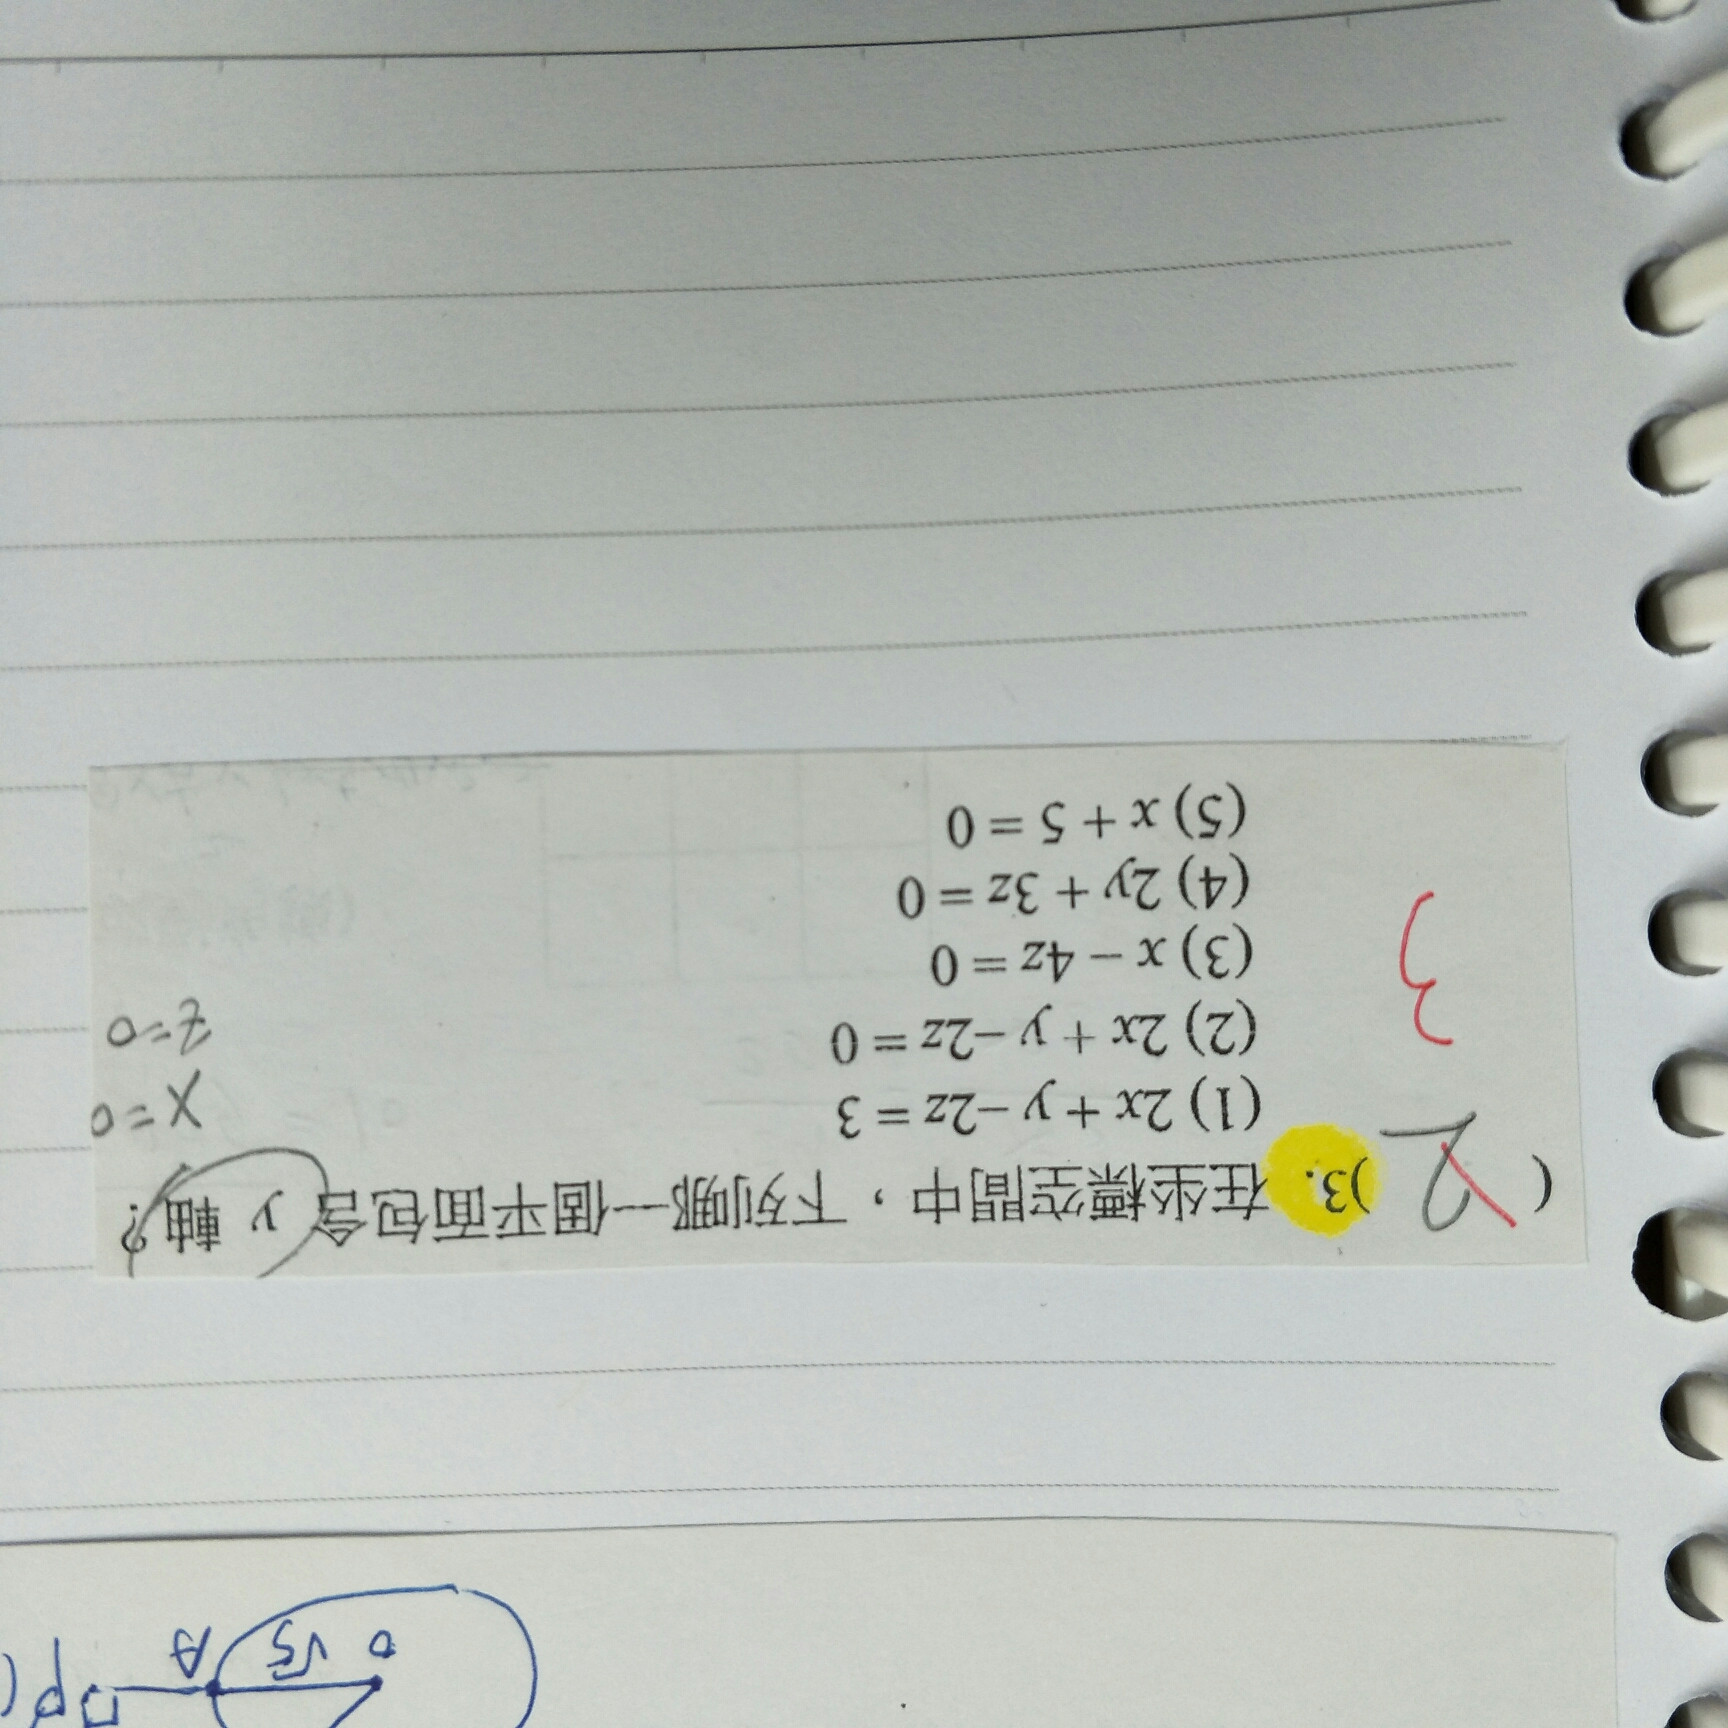 ( 2 )3. 在坐標空間中，下列哪一個平面包含 y 軸？
(1) 2x + y −2z = 3
x=0
(2) 2x + y −2z = 0
z=0
3
(3) x − 4z = 0
(4) 2y + 3z = 0
(5) x + 5 = 0
0 √5 A P(